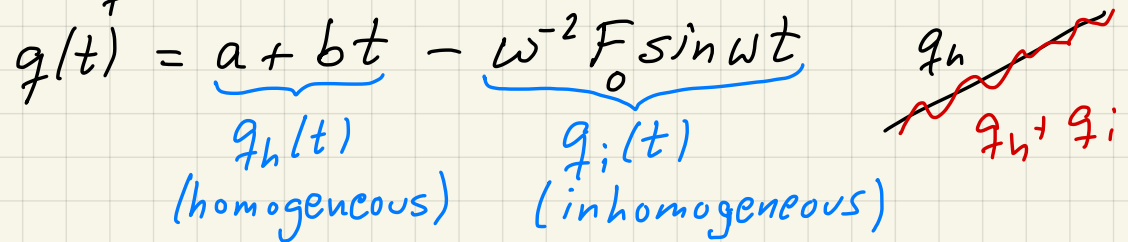 q(t) = a + bt − ω⁻² F₀ sin ωt
q_h(t) q_i(t)
(homogeneous) (inhomogeneous)
q_h
q_h + q_i